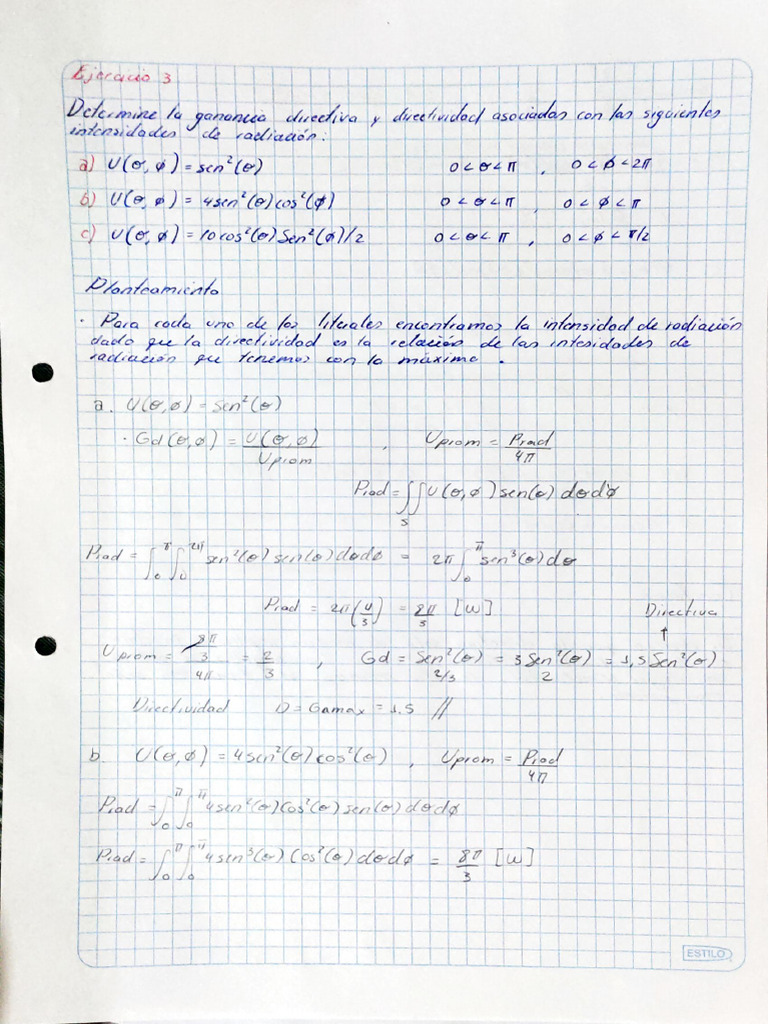 Ejercicio 3
Determine la ganancia directiva y directividad asociadas con las siguientes
intensidades de radiación:
a) U(θ, φ) = sen²(θ) 0 < θ < π , 0 < φ < 2π
b) U(θ, φ) = 4sen²(θ)cos²(φ) 0 < θ < π , 0 < φ < π
c) U(θ, φ) = 10cos²(θ)Sen²(φ)/2 0 < θ < π , 0 < φ < π/2
Planteamiento
· Para cada uno de los literales encontramos la intensidad de radiación
dado que la directividad es la relación de las intesidades de
radiación que tenemos con la máxima .
a. U(θ, φ) = Sen²(θ)
· Gd(θ, φ) = U(θ, φ)/Uprom , Uprom = Prad/4π
Prad = ∫∫_S U(θ, φ) sen(θ) dθdφ
Prad = ∫₀^π ∫₀^2π sen²(θ) sen(θ) dθdφ = 2π ∫₀^π sen³(θ) dθ
Prad = 2π(4/3) = 8π/3 [W] Directiva
↑
Uprom = (8π/3)/4π = 2/3 , Gd = Sen²(θ)/(2/3) = 3Sen²(θ)/2 = 1,5 Sen²(θ)
Directividad D = Gdmax = 1.5 //
b. U(θ, φ) = 4sen²(θ)cos²(θ) , Uprom = Prad/4π
Prad = ∫₀^π ∫₀^π 4sen²(θ)Cos²(θ) sen(θ) dθdφ
Prad = ∫₀^π ∫₀^π 4sen³(θ) Cos²(θ) dθdφ = 8π/3 [W]
ESTILO